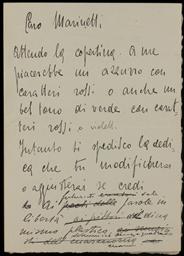 Caro Marinetti
attendo la copertina. a me
piacerebbe un azzurro con
caratteri rossi o anche un
bel tono di verde con carat
teri rossi o violetti.
Intanto ti spedisco la dedi
ca che tu modificherai
o aggiusterai se credi
parole in
libertà dina
mismo plastico